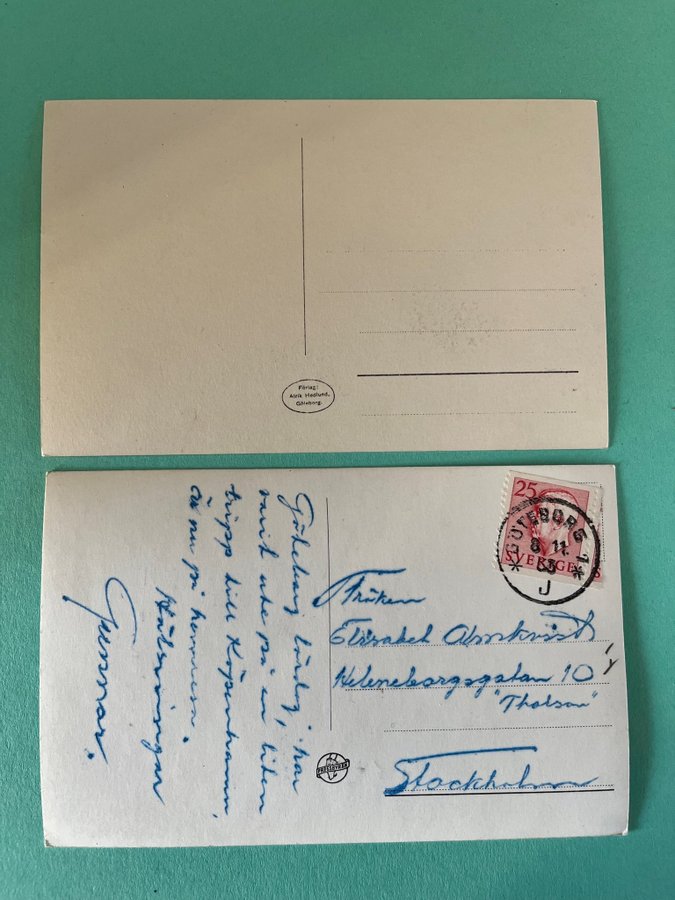 Förlag:
Alrik Hedlund,
Göteborg.
Göteborg lördag
varit ute på en liten
tripp till Köpenhamn,
är nu på hemresa.
Hälsningar
Gunnar.
25
SVERIGE
GÖTEBORG 1
8 11.
55
J
Fröken
Elisabet Almkvist
Heleneborgsgatan 10
"Tholson"
Stockholm